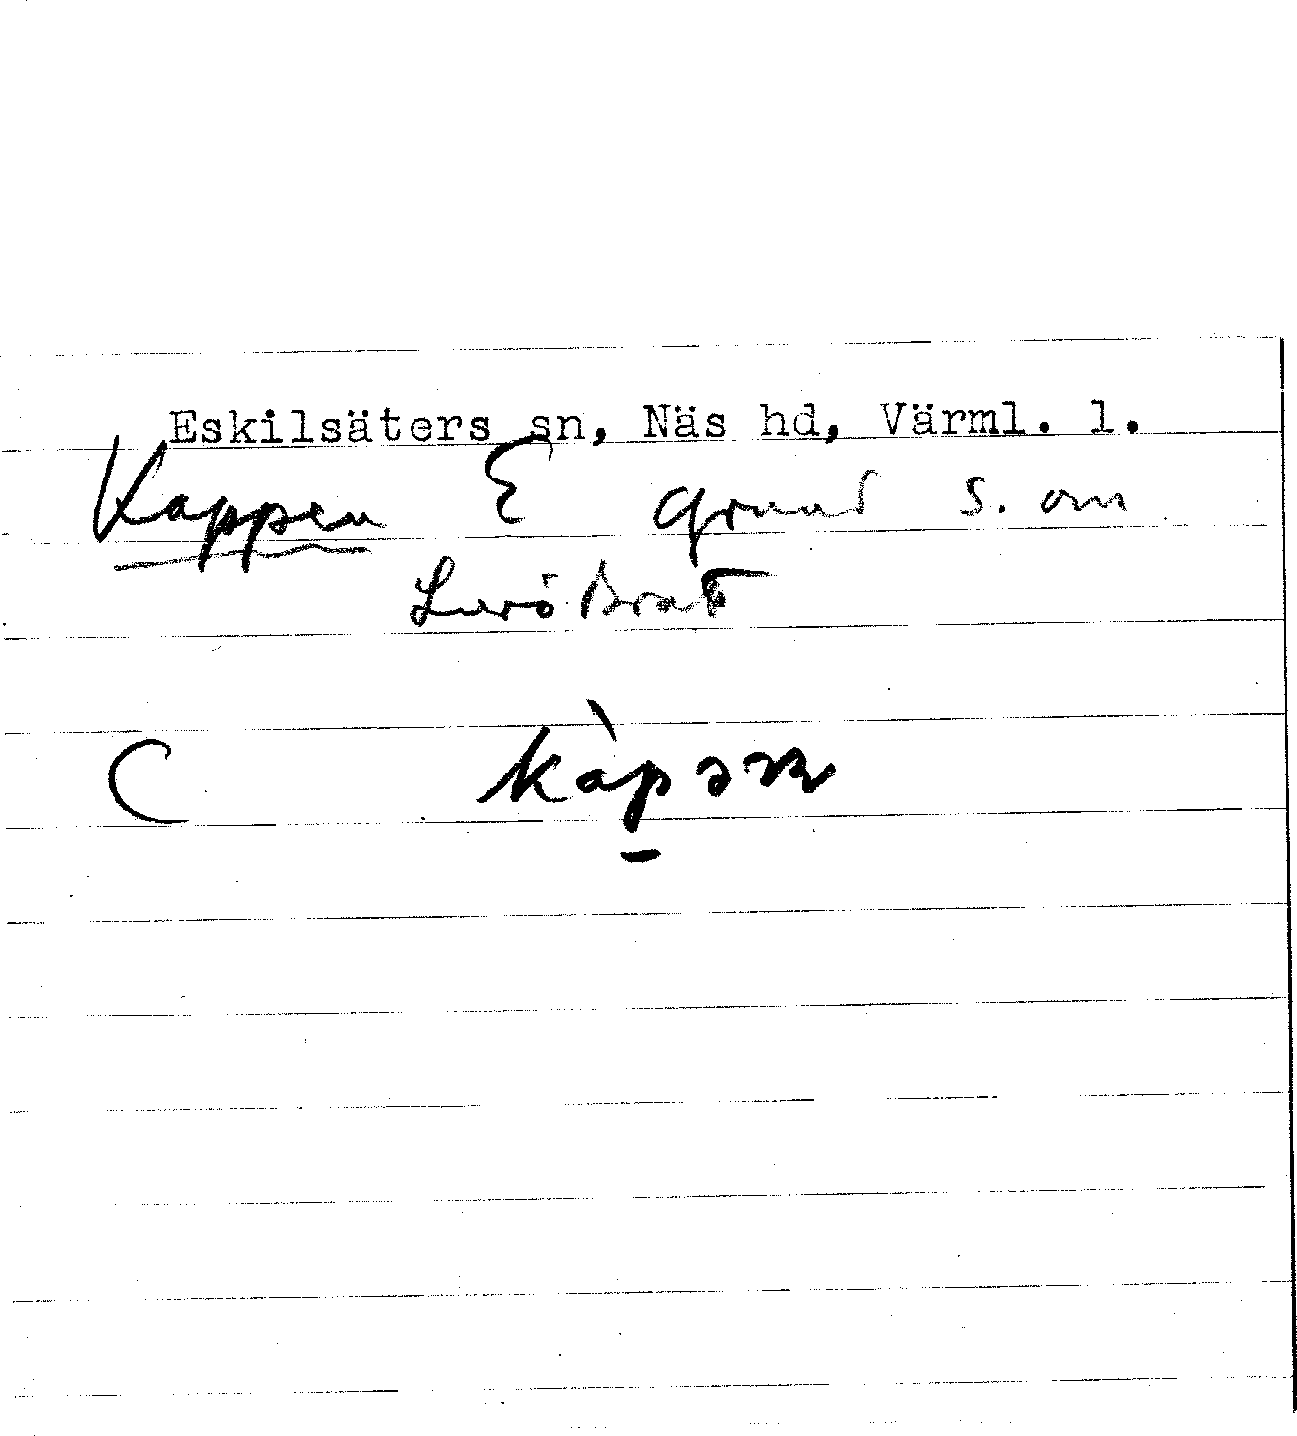 Eskilsäters sn, Näs hd, Värml. l.
Kappen E grund s. om
Lurö
C kàpən